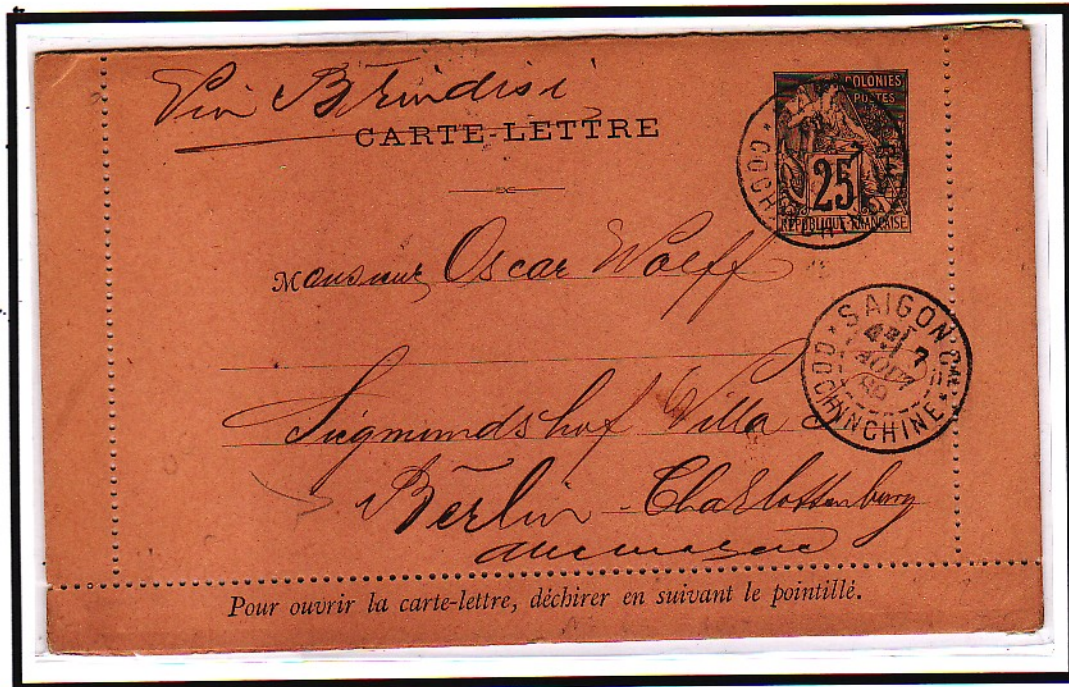 Via Brindisi
CARTE-LETTRE
COLONIES
POSTES
25
RÉPUBLIQUE FRANÇAISE
COCHINCHINE
Monsieur Oscar Wolff
SAIGON
7
AOUT
89
COCHINCHINE
Siegmundshof Villa
Berlin - Charlottenburg
Allemagne
Pour ouvrir la carte-lettre, déchirer en suivant le pointillé.